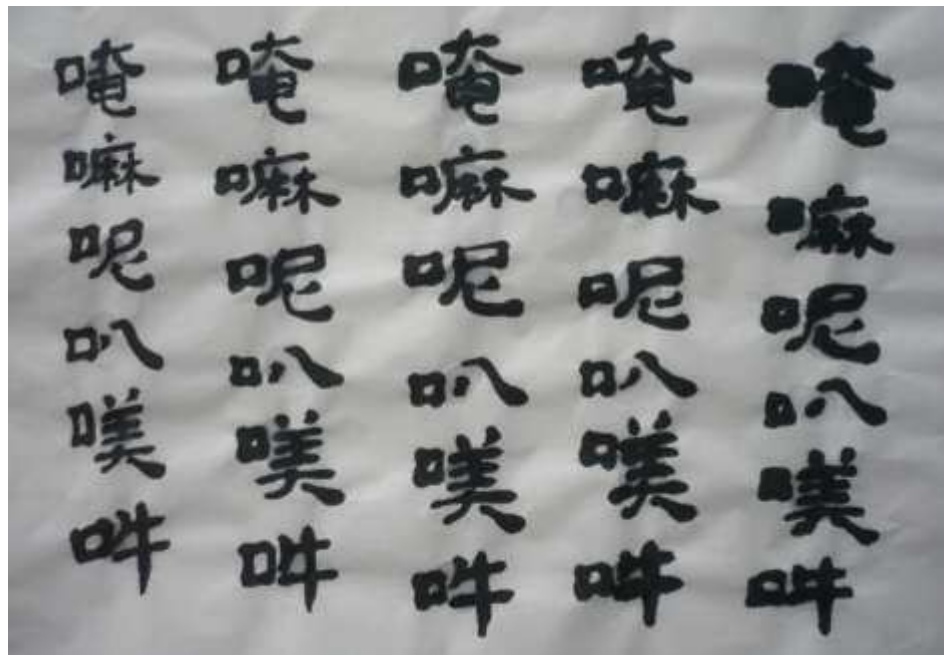 唵嘛呢叭吽
唵嘛呢叭吽
唵嘛呢叭吽
唵嘛呢叭吽
唵嘛呢叭吽